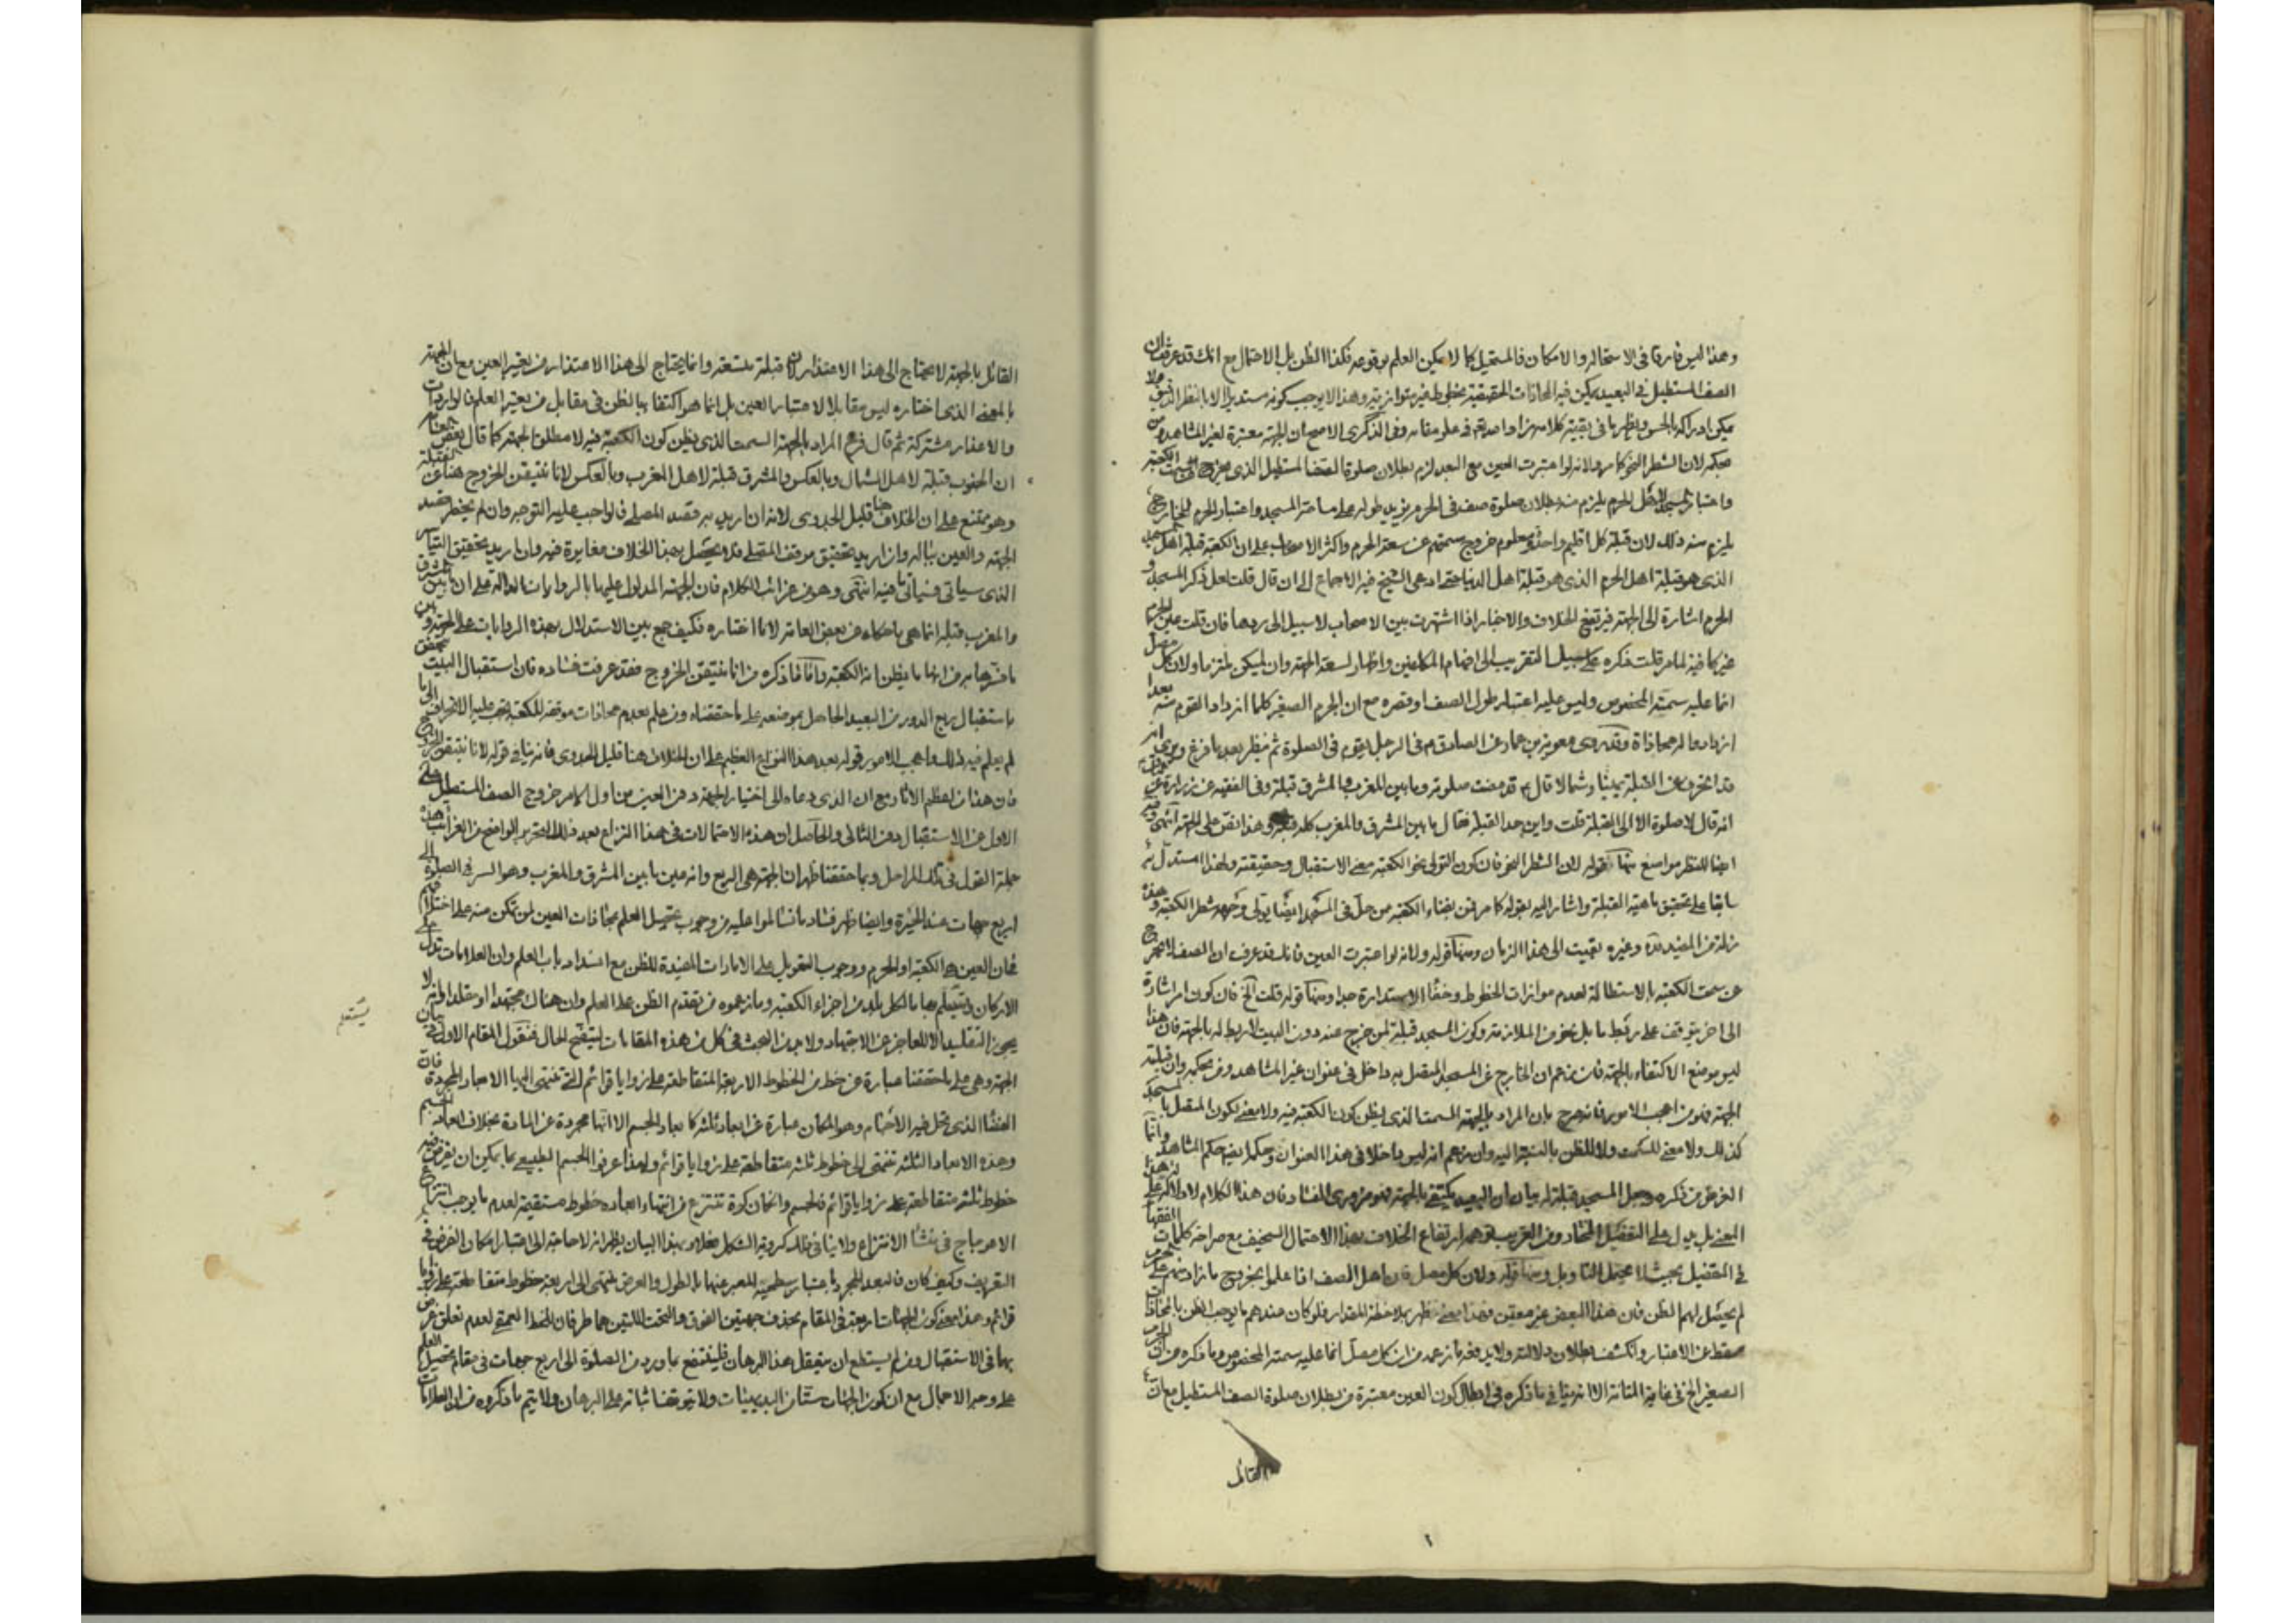 وهذا ليس فارقا في الاستحاله والامكان فالمستحيل كما لا يمكن العلم بوقوعه فكذا الظن بل الاحتمال مع انك قد عرفت ان
الصف المستطيل في البعيد يمكن فيه المحاذات الحقيقية بخطوط غير متوازية وهذا لا يوجب كونه مستديرا الا بالنظر الدقيق
يمكن ادراكه بالحس ويظهر ما في بقية كلامه زاد الله في علو مقامه وفي الذكرى الاصح ان الجهة معتبرة لغير المشاهد ومن
بحكمه لان الشطر النحو كما مر ولانه لو اعتبرت العين مع البعد لزم بطلان صلوة الصف المستطيل الذي يخرج عن سمت الكعبة
واعتبار المسجد لاهل الحرم يلزم منه بطلان صلوة صف في الحرم يزيد طوله على ساحة المسجد واعتبار الحرم للخارج
يلزم منه ذلك لان قبلة كل اقليم واحدة ومعلوم خروج سمتهم عن سعة الحرم واكثر الاصحاب على ان الكعبة قبلة اهل المسجد
الذي هو قبلة اهل الحرم الذي هو قبلة اهل الدنيا حتى ادعى الشيخ فيه الاجماع الى ان قال قلت لعل ذكر المسجد و
الحرم اشارة الى الجهة فيرتفع الخلاف والاخبار اذا اشتهرت بين الاصحاب لا سبيل الى ردها فان قلت على الحرم
غير كافية لما مر قلت ذكره على سبيل التقريب الى افهام المكلفين واظهار لسعة الجهة وان لم يكن ملتزما ولان كل مصل
انما عليه سمته المخصوص وليس عليه اعتبار طول الصف او قصره مع ان الجرم الصغير كلما ازداد القوم منه بعدا
ازدادوا له محاذاة وقد روى معوية بن عمار عن الصادق ع في الرجل يقوم في الصلوة ثم ينظر بعد ما فرغ ويرى انه
قد انحرف عن القبلة يمينا وشمالا قال ع قد مضت صلوته وما بين المغرب والمشرق قبلة وفي الفقيه عن زرارة عن
انه قال لا صلوة الا الى القبلة قلت واين حد القبلة فقال ما بين المشرق والمغرب كله قبلة وهذا نص على الجهة انتهى وفيه
ايضا للنظر مواضع منها قوله لان الشطر النحو فان كون التولي نحو الكعبة معنى الاستقبال وحقيقته ولهذا استدل به
سابقا على تحقيق ماهية القبلة واشار اليه بقوله كما مر فمن بفناء الكعبة من حل في المسجد ايضا يولى وجهه شطر الكعبة وهذه
زلة من المفيد قده وغيره بقيت الى هذا الزمان ومنها قوله ولانه لو اعتبرت العين فانك قد عرفت ان الصف لا يخرج
عن سمت الكعبة بالاستطالة لعدم موازات الخطوط وخفاء الاستدارة جدا ومنها قوله قلت الخ فان كون امر اشارة
الى اخر يتوقف على ربط ما بل نحو من الملازمة وكون المسجد قبلة لمن خرج عنه دون البيت لا ربط له بالجهة فان هذا
ليس موضع الاكتفاء بالجهة فان زعم ان الخارج عن المسجد المتصل به داخل في عنوان غير المشاهد ومن بحكمه وان قبلته
الجهة فهو من اعجب الامور فانه صرح بان المراد بالجهة السمت الذي يظن كون الكعبة فيه ولا معنى لكون المتصل بالمسجد
كذلك ولا معنى للسمت ولا للظن بالنسبة اليه وان زعم انه ليس داخلا في هذا العنوان وحكما بغير حكم المشاهد وانما
الغرض من ذكره وجعل المسجد قبلة له بيان ان البعيد يكتفي بالجهة فهو ضروري الفساد فان هذا الكلام لا دلالة له على هذا
المعنى بل يدل على التفصيل المضاد ومن الغريب توهم ارتفاع الخلاف بهذا الاحتمال السخيف مع صراحة كلمات الفقهاء
في التفصيل بحيث لا يحتمل التاويل ومنها قوله ولان كل مصل فان اهل الصف اذا علموا بخروج ما زاد منهم على الحرم
لم يحصل لهم الظن فان هذا البعض غير معين فهذا معنى ظهر بملاحظة المقدار فلو كان عندهم ما يوجب الظن بالمحاذات
سقط عن الاعتبار وانكشف بطلان دلالته ولا يدفعه ما زعمه من ان كل مصل انما عليه سمته المخصوص وما ذكره من ان الجرم
الصغير الخ في غاية المتانة الا انه ينافي ما ذكره في ابطال كون العين معتبرة من بطلان صلوة الصف المستطيل مع ان
القائل
القائل بالجهة لا يحتاج الى هذا الاعتذار لان قبلته متسعة وانما يحتاج الى هذا الاعتذار من يعتبر العين مع ان الجهة
بالمعنى الذي اختاره ليس مقابلا لاعتبار العين بل انما هو اكتفاء بالظن في مقابل من يعتبر العلم فالواردات
والاعذار مشتركة ثم قال فرع المراد بالجهة السمت الذي يظن كون الكعبة فيه لا مطلق الجهة كما قال بعض العامة
ان الجنوب قبلة لاهل الشمال وبالعكس والمشرق قبلة لاهل المغرب وبالعكس لانا نتيقن الخروج هنا عن القبلة
وهو ممتنع على ان الخلاف هنا قليل الجدوى لانه ان اريد به قصد المصلى فالواجب عليه التوجه وان لم يخطر قصد
الجهة والعين بباله وان اريد تحقيق موقف المصلى فلا يحصل بهذا الخلاف مغايرة فيه وان اريد تحقيق التياسر
الذي سياتي فسياتي ما فيه انتهى وهو من غرائب الكلام فان الجهة المدلول عليها بالروايات الدالة على ان ما بين المشرق
والمغرب قبلة انما هي ما حكاه عن بعض العامة لا ما اختاره فكيف جمع بين الاستدلال بهذه الروايات على الجهة وبين
ما فسرها به من انها ما يظن انه الكعبة واما ما ذكره من انا نتيقن الخروج فقد عرفت فساده فان استقبال البيت يتحقق
باستقبال ربع الدور من البعيد الحاصل بموضعه على ما حققناه ومن علم بعدم محاذات موقفه للكعبة يجب عليه الانحراف الى ما
لم يعلم فيه ذلك واعجب الامور قوله بعد هذا النزاع العظيم على ان الخلاف هنا قليل الجدوى فانه ينافي قوله لانا نتيقن الخروج
فان هذا من اعظم الاثار مع ان الذي دعاه الى اختيار الجهة دون العين من اول الامر خروج الصف المستطيل على
الاول عن الاستقبال دون الثاني والحاصل ان هذه الاحتمالات في هذا النزاع بعد ذلك التحرير الواضح من الغرائب هذه
جملة القول في تلك المراحل وبما حققنا ظهر ان الجهة هي الربع وانه عين ما بين المشرق والمغرب وهو السر في الصلوة الى
اربع جهات عند الحيرة وايضا ظهر فساد ما تسالموا عليه من وجوب تحصيل العلم بمحاذات العين لمن تمكن منه على اختلافهم
في ان العين هو الكعبة او الحرم ووجوب التعويل على الامارات المفيدة للظن مع انسداد باب العلم وان العلامات تدل على
الاركان ويستعلم بها ما لكل بلد من اجزاء الكعبة وما زعموه من تقدم الظن على العلم وان هناك مجتهدا او مقلدا وانه لا
يستعلم
يجوز التقليد الا للعاجز عن الاجتهاد ولا بد من البحث في كل من هذه المقامات ليتضح الحال فنقول المقام الاول في بيان
الجهة وهي على ما حققنا عبارة عن خط من الخطوط الاربعة المتقاطعة على زوايا قوائم التي تنتهى اليها الابعاد المجردة فان
الفضاء الذي تحل فيه الاجسام وهو المكان عبارة عن ابعاد ثلثه كابعاد الجسم الا انها مجردة عن المادة بخلاف ابعاد الجسم
وهذه الابعاد الثلثة تنتهى الى خطوط ثلثه متقاطعة على زوايا قوائم ولهذا عرفوا الجسم الطبيعي بما يمكن ان يفرض فيه
خطوط ثلثه متقاطعة على زوايا قوائم فالجسم وان كان كرة تنتزع من انتهاء ابعاده خطوط مستقيمة لعدم ما يوجب انتزاع
الاعوجاج في منشأ الانتزاع ولا ينافي ذلك كروية الشكل فعلا وبهذا البيان يظهر انه لا حاجة الى اعتبار امكان الفرض في
التعريف وكيف كان فالبعد المجرد باعتبار سطحية المعبر عنها بالطول والعرض تنتهى الى اربعة خطوط متقاطعة على زوايا
قوائم وهذا معنى كون الجهات اربعة في المقام بحذف جهتين الفوق والتحت اللتين هما طرفان للخط العمقى لعدم تعلق غرض
بها في الاستقبال ومن لم يستطع ان يتعقل هذا البرهان فلينتفع بما ورد من الصلوة الى اربع جهات في مقام تحصيل العلم
على وجه الاجمال مع ان كون الجهات ستا من البديهيات ولا يتوقف اثباته على البرهان ولا يتم ما ذكروه من ان العلامات